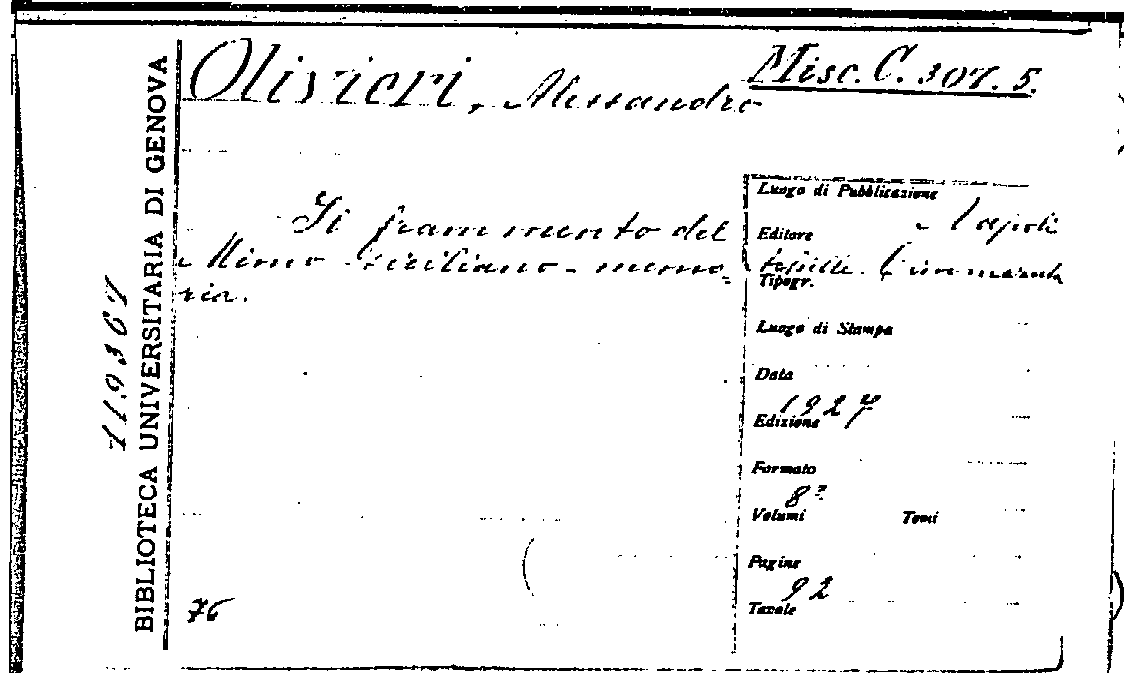 Olivieri, Alessandro
Misc. C. 307. 5.
BIBLIOTECA UNIVERSITARIA DI GENOVA
119367
frammento del
Mimo Siciliano - memo-
ria.
Luogo di Pubblicazione
Napoli
Editore
Cimmaruta
Tipogr.
Luogo di Stampa
Data
1927
Edizione
Formato
8º
Volumi Tomi
Pagine
92
Tavole
76